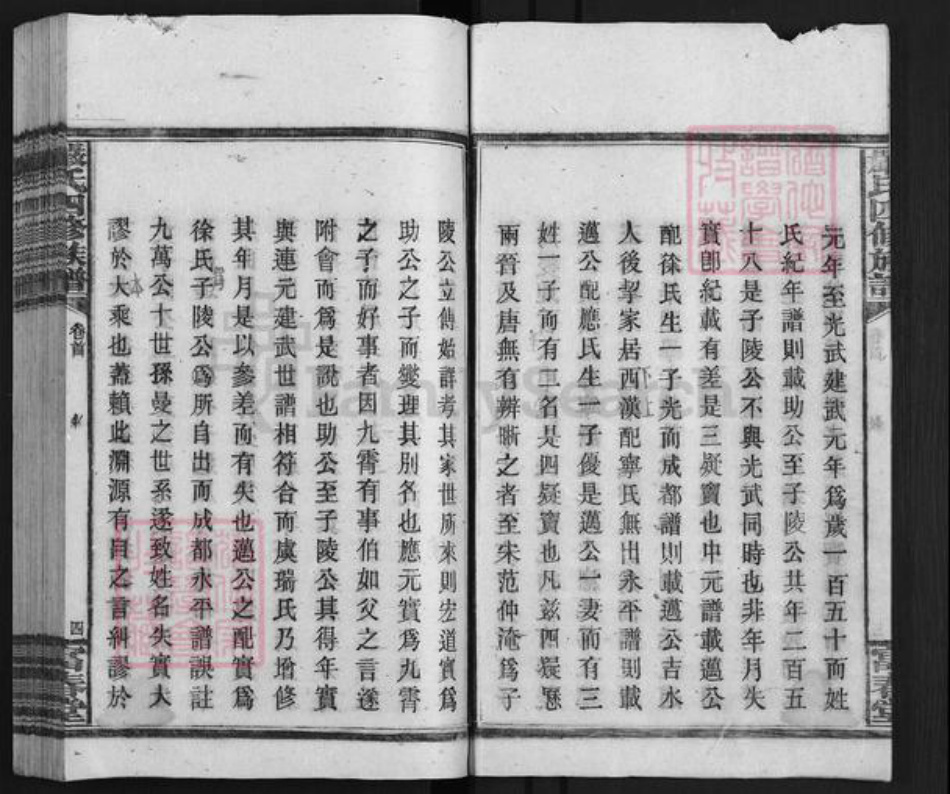 元年至光武建武元年爲歲一百五十而姓
氏紀年譜則載助公至子陵公共年二百五
十八是子陵公不與光武同時也非年月失
實卽紀載有差是三疑竇也中元譜載邁公
配徐氏生一子光而成都譜則載邁公吉水
人後挈家居西漢配寧氏無出永平譜則載
邁公配應氏生一子優是邁公一妻而有三
姓一子而有二名是四疑竇也凡茲四疑歷
兩晉及唐無有辨晰之者至宋范仲淹爲子
陵公立傳始詳考其家世所來則宏道實爲
助公之子而燮理其別名也應元實爲九霄
之子而好事者因九霄有事伯如父之言遂
附會而爲是說也助公至子陵公其得年實
與連元建武世譜相符合而虞瑞氏乃增修
其年月是以參差而有失也邁公之配實爲
徐氏子陵公爲所自出而成都永平譜誤註
九萬公十世孫曼之世系遂致姓名失實大
謬於大乘也蓋賴此淵源有自之言糾謬於
氏四修族譜
卷首
四
富春堂